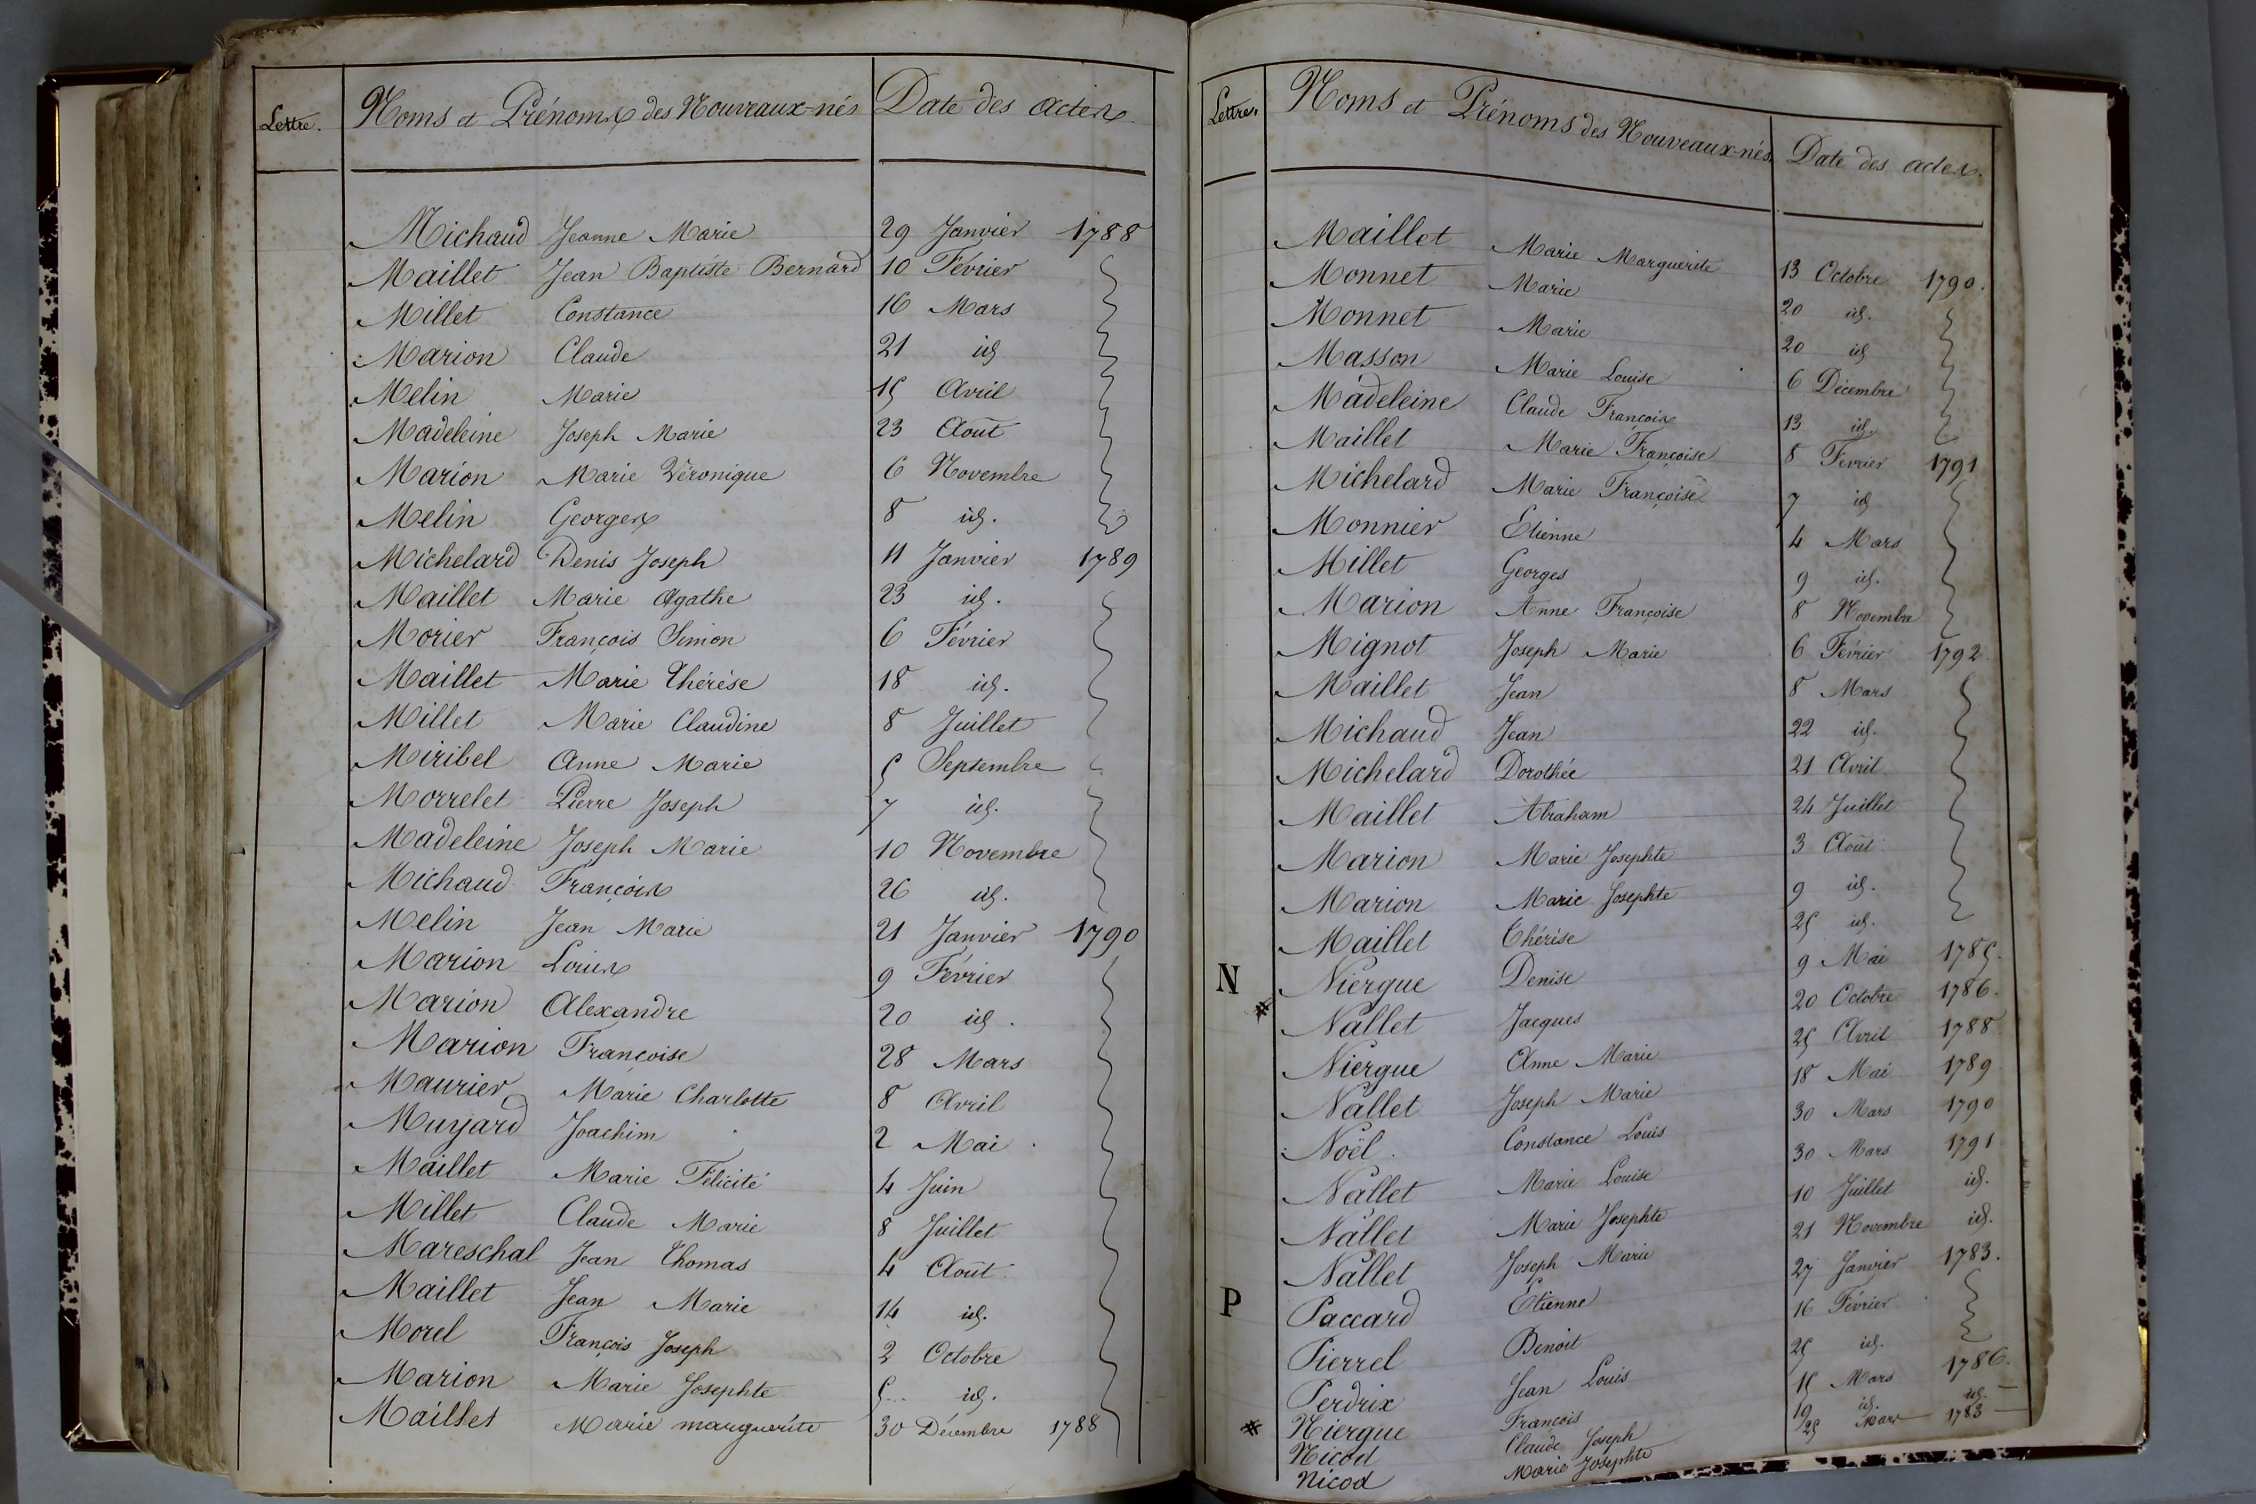 Lettre. Noms et Prénoms des Nouveaux-nés Date des actes
Michaud Jeanne Marie 29 Janvier 1788
Maillet Jean Baptiste Bernard 10 Février
Millet Constance 16 Mars
Marion Claude 21 id
Melin Marie 15 Avril
Madeleine Joseph Marie 23 Août
Marion Marie Véronique 6 Novembre
Melin Georges 8 id.
Michelard Denis Joseph 11 Janvier 1789
Maillet Marie Agathe 23 id.
Morier François Simon 6 Février
Maillet Marie Thérèse 18 id.
Millet Marie Claudine 8 Juillet
Miribel Anne Marie 5 Septembre
Morrelet Pierre Joseph 7 id.
Madeleine Joseph Marie 10 Novembre
Michaud François 26 id.
Melin Jean Marie 21 Janvier 1790
Marion Louis 9 Février
Marion Alexandre 20 id.
Marion Françoise 28 Mars
Maurier Marie Charlotte 8 Avril
Muyard Joachim 2 Mai
Maillet Marie Félicité 4 Juin
Millet Claude Marie 8 Juillet
Mareschal Jean Thomas 4 Août
Maillet Jean Marie 14 id.
Morel François Joseph 2 Octobre
Marion Marie Josephte 5 id.
Maillet Marie marguerite 30 Décembre 1788
Lettres. Noms et Prénoms des Nouveaux-nés Date des actes.
Maillet Marie Marguerite 13 Octobre 1790.
Monnet Marie 20 id.
Monnet Marie 20 id
Masson Marie Louise 6 Décembre
Madeleine Claude François 13 id.
Maillet Marie Françoise 8 Février 1791
Michelard Marie Françoise 7 id
Monnier Etienne 4 Mars
Millet Georges 9 id.
Marion Anne Françoise 8 Novembre
Mignot Joseph Marie 6 Février 1792
Maillet Jean 8 Mars
Michaud Jean 22 id.
Michelard Dorothée 21 Avril
Maillet Abraham 24 Juillet
Marion Marie Josephte 3 Août
Marion Marie Josephte 9 id.
Maillet Thérèse 25 id.
N Niergue Denise 9 Mai 1785.
Nallet Jacques 20 Octobre 1786.
Niergue Anne Marie 25 Avril 1788
Nallet Joseph Marie 18 Mai 1789
Noël Constance Louis 30 Mars 1790
Nallet Marie Louise 30 Mars 1791
Nallet Marie Josephte 10 Juillet id.
Nallet Joseph Marie 21 Novembre id.
P Paccard Etienne 27 Janvier 1783.
Pierrel Benoit 16 Février
Perdrix Jean Louis 25 id.
Niergue François 15 Mars 1786.
Nicod Claude Joseph 19 id. id.
Nicod Marie Josephte 25 Mars 1783